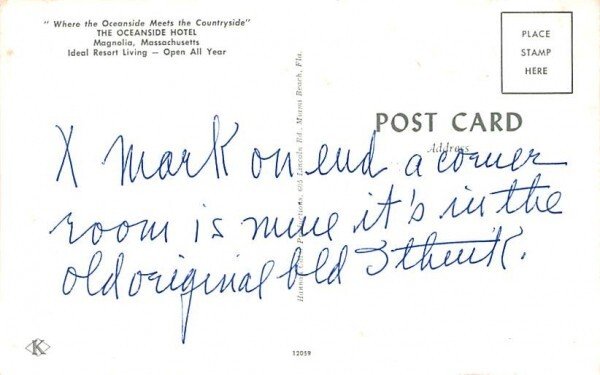 " Where the Oceanside Meets the Countryside"
THE OCEANSIDE HOTEL
Magnolia, Massachusetts
Ideal Resort Living — Open All Year
PLACE
STAMP
HERE
POST CARD
Address
Lincoln Rd. Miami Beach, Fla.
X Mark on end a corner
room is mine it's in the
old original bld I think.
K
12059